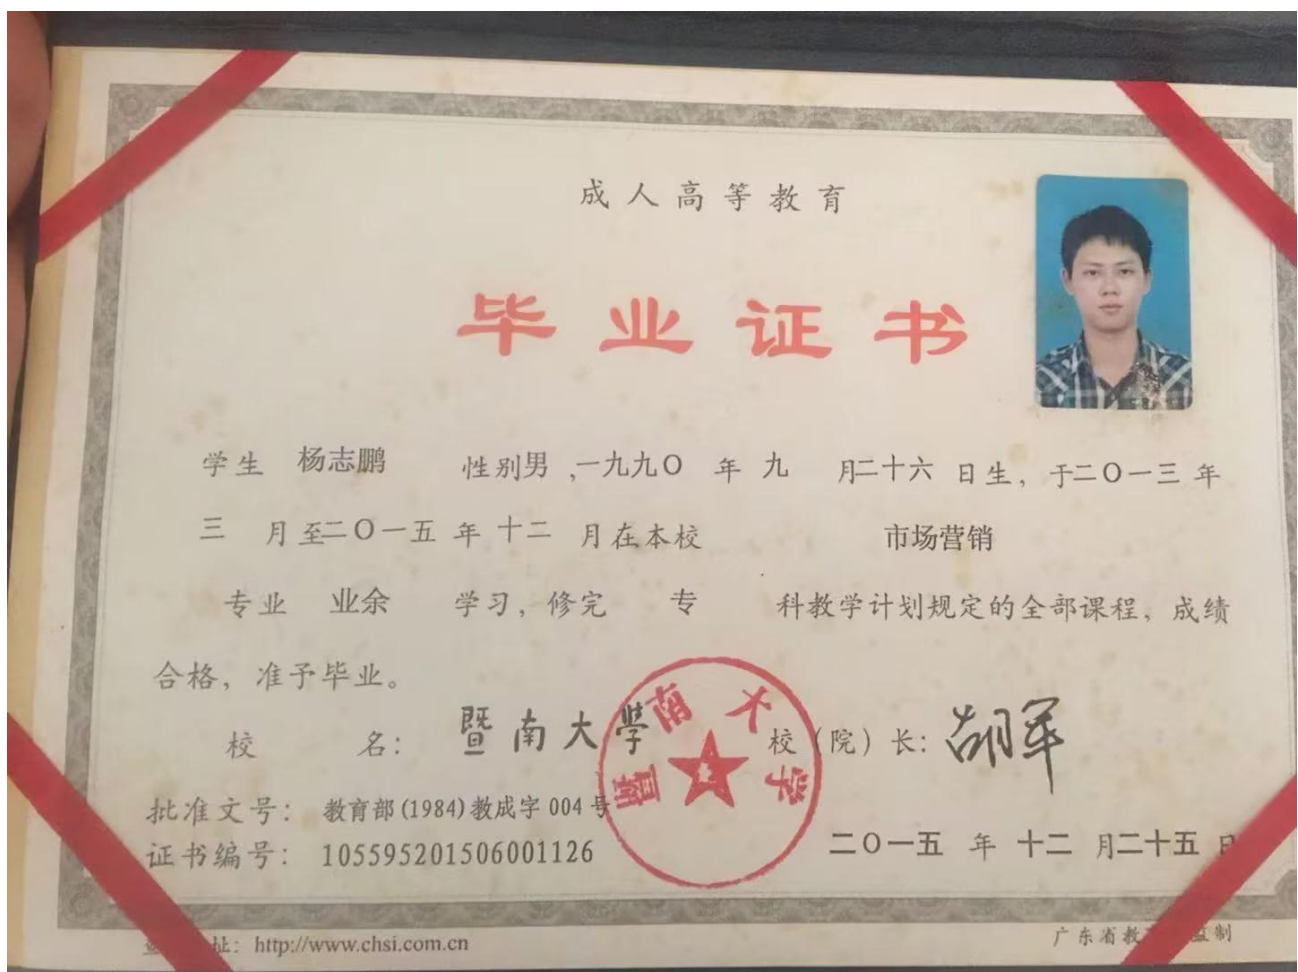 成人高等教育
毕业证书
学生 杨志鹏 性别男,一九九〇 年 九 月二十六 日生,于二〇一三 年
三 月至二〇一五 年 十二 月在本校 市场营销
专业 业余 学习,修完 专 科教学计划规定的全部课程,成绩
合格,准予毕业。
校 名: 暨南大學 校(院)长: 胡军
暨南大学
批准文号: 教育部(1984)教成字 004 号
证书编号: 105595201506001126
二〇一五 年 十二 月二十五 日
址: http://www.chsi.com.cn
广东省教 监制